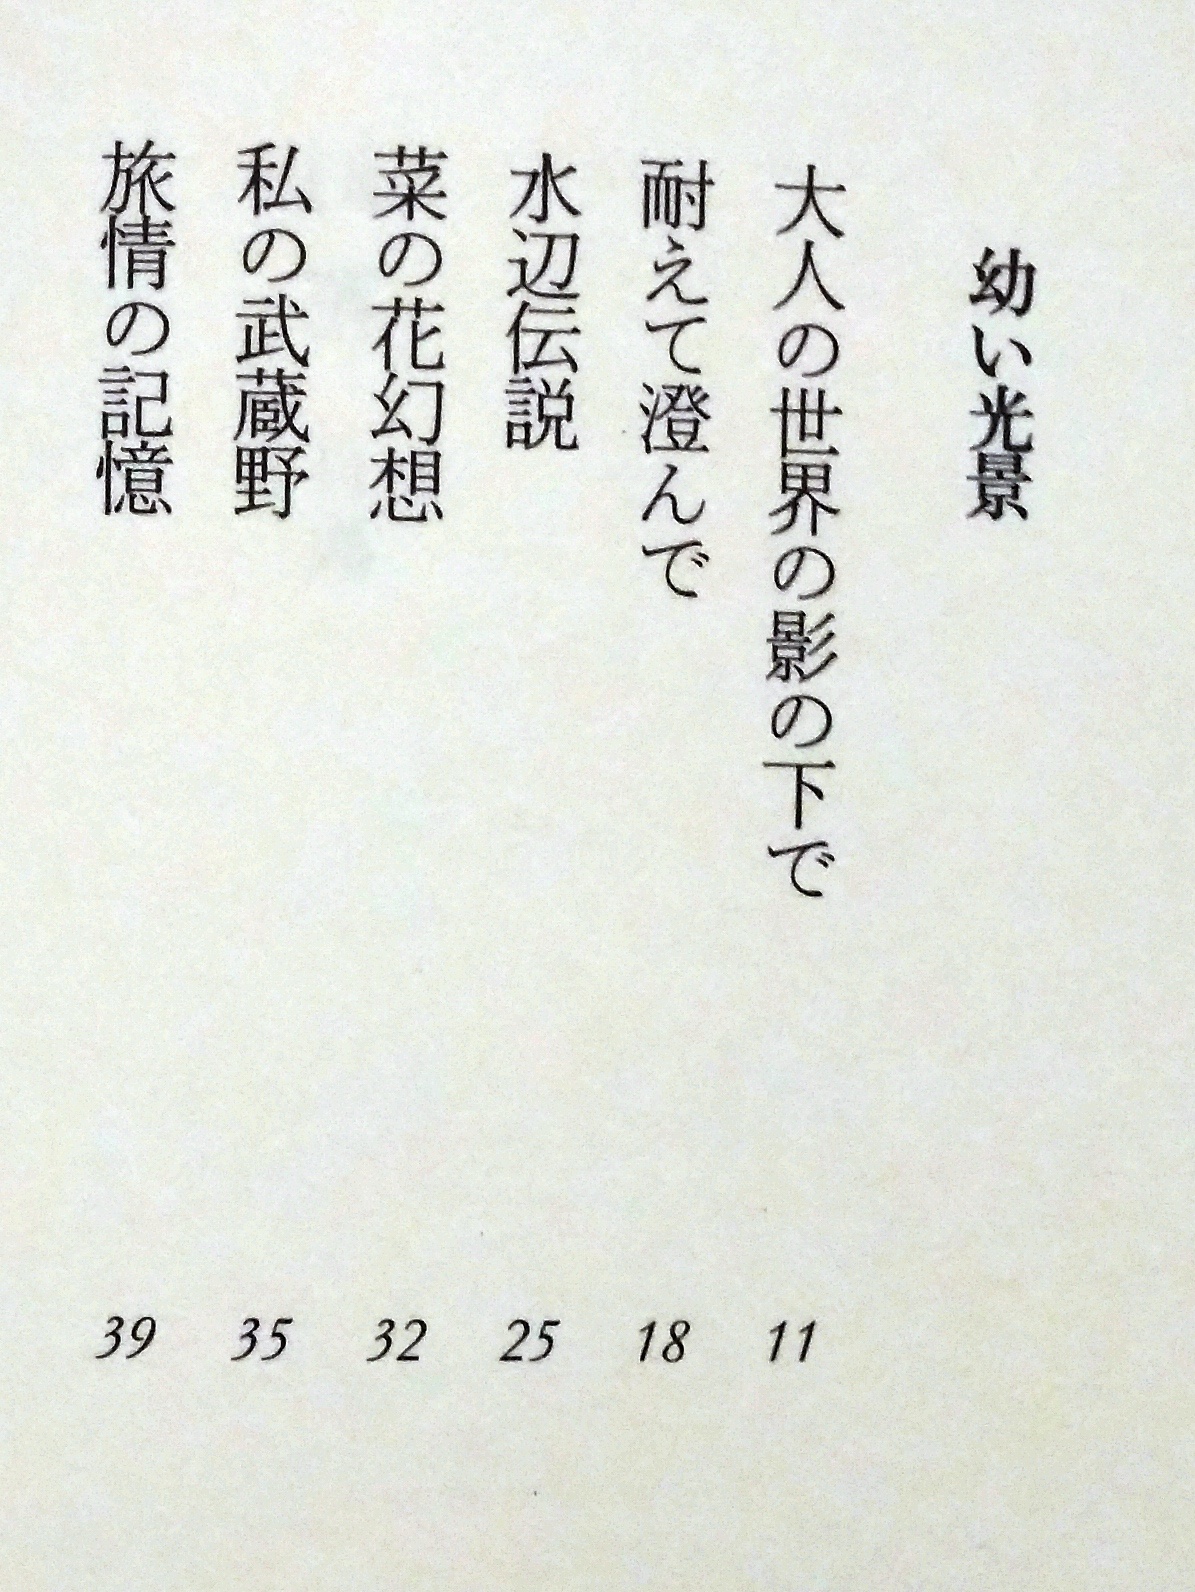 幼い光景
大人の世界の影の下で 11
耐えて澄んで 18
水辺伝説 25
菜の花幻想 32
私の武蔵野 35
旅情の記憶 39